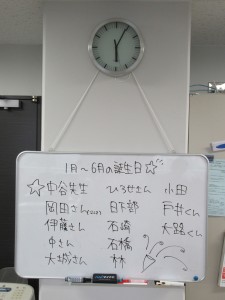 1月～6月の誕生日☆
☆中谷先生 ひろせさん 小田
岡田さん 日下部 戸井くん
伊藤さん 石崎 大路くん
中さん 石橋
大城さん 林